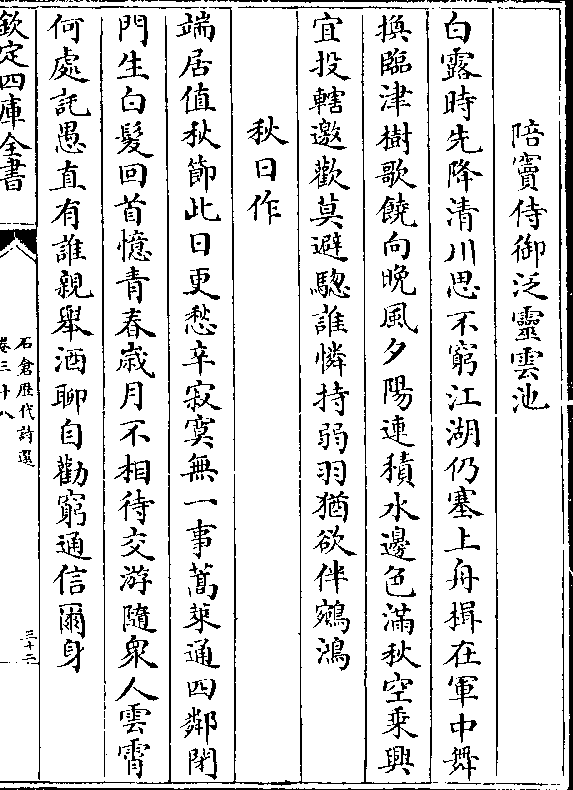 陪竇侍御泛靈雲池
白露時先降清川思不窮江湖仍塞上舟楫在軍中舞
換臨津樹歌饒向晚風夕陽連積水邊色滿秋空乘興
宜投轄邀歡莫避驄誰憐持弱羽猶欲伴鵷鴻
秋日作
端居值秋節此日更愁辛寂寞無一事蒿萊通四鄰閉
門生白髮回首憶青春歲月不相待交游隨衆人雲霄
何處託愚直有誰親舉酒聊自勸窮通信爾身
欽定四庫全書
石倉歴代詩選
卷三十八
三十二